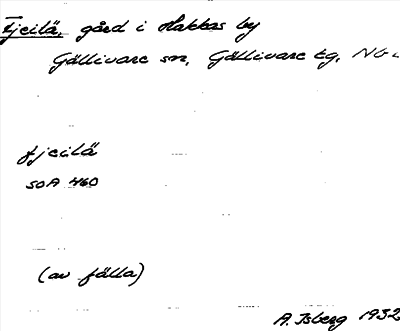 Fjeilä, gård i Hakkas by
Gällivare sn, Gällivare tg, Nb
fjeilä
SOA 460
(av fälla)
A. Isberg 1932